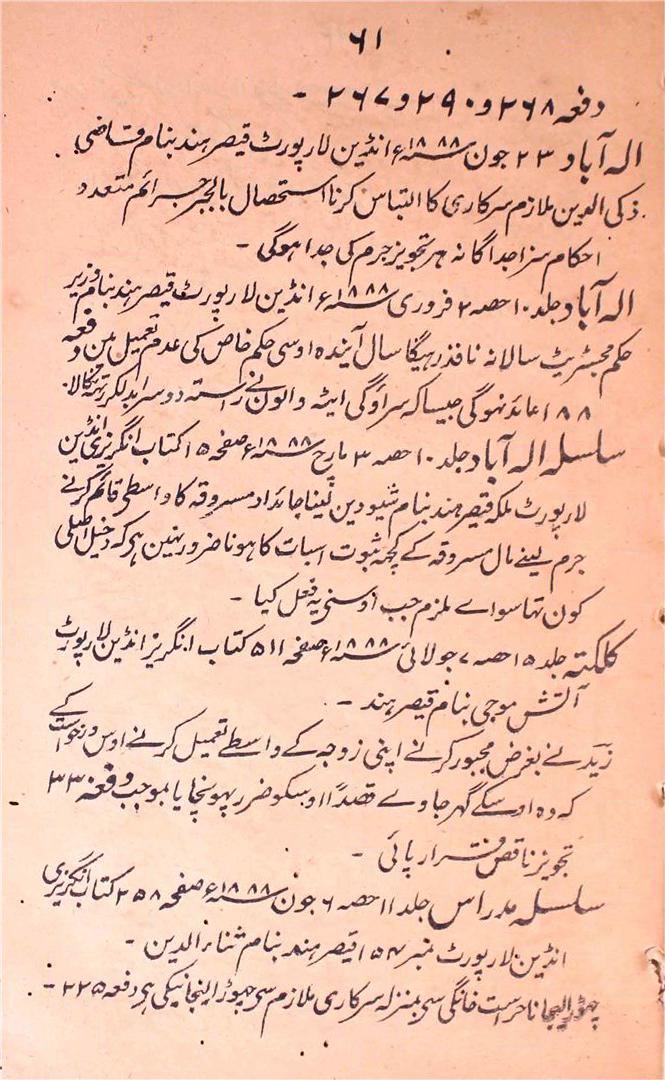 ۶۱
دفعہ ۲۶۸ و ۲۹۰ و ۲۶۷ -
الہ آباد ۲۳ جون سنہ ۱۸۸۸ء انڈین لا رپورٹ قیصر ہند بنام قاضی
ذکی الدین ملازم سرکاری کا التباس کرنا استحصال بالجبر جرائم متعدد
احکام سزا جداگانہ ہر تجویز جرم کی جدا ہوگی -
الہ آباد جلد ۱۰ حصہ ۲ فروری سنہ ۱۸۸۸ء انڈین لا رپورٹ قیصر ہند بنام وزیر
حکم مجسٹریٹ سالانہ نافذ رہیگا سال آیندہ اوسی حکم خاص کی عدم تعمیل مین دفعہ
۱۸۸ عائد نہوگی جیسا کہ سراوگی ایٹہ والون نے راستہ دوسرا بدلکر نکالا
سلسلہ الہ آباد جلد ۱۰ حصہ ۳ مارچ سنہ ۱۸۸۸ء صفحہ ۱۵ کتاب انگریزی انڈین
لا رپورٹ ملکہ قیصر ہند بنام شیودین لینا جائداد مسروقہ کا واسطی قائم کرنے
جرم لینے مال مسروقہ کے کچھ ثبوت اسبات کا ہونا ضرور نہین ہی کہ دخیل اصلی
کون تھا سواے ملزم جب اوسنی یہ فعل کیا -
کلکتہ جلد ۱۵ حصہ ۷ جولائی سنہ ۱۸۸۸ء صفحہ ۵۱۱ کتاب انگریز انڈین لا رپورٹ
آتش موجی بنام قیصر ہند -
زید نے بغرض مجبور کرنے اپنی زوجہ کے واسطے تعمیل کرنے اوس درخواست کے
کہ وہ اوسکے گھر جاوے قصداً اوسکو ضرر پہونچایا بموجب دفعہ ۳۳
تجویز ناقص قرار پائی -
سلسلہ مدراس جلد ۱۱ حصہ ۶ جون سنہ ۱۸۸۸ء صفحہ ۲۵۸ کتاب انگریزی
انڈین لا رپورٹ نمبر ۱۵۴ قیصر ہند بنام ثناء الدین -
چھوڑا لیجانا حراست خانگی سی بمنزلہ سرکاری ملازم سی چھوڑا لیجانیکی ہی دفعہ ۲۲۵ -